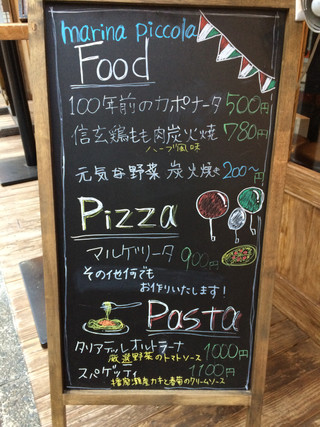 marina piccola
Food
100年前のカポナータ 500円
信玄鶏もも肉炭火焼 780円
ハーブ風味
元気な野菜 炭火焼き 200〜円
Pizza
マルゲリータ 900円
そのイセイラでも
お作りいたします!
Pasta
タリアテッレ オルトラーナ 1000円
厳選野菜のトマトソース
スパゲッティ 1100円
播磨灘産カキと春菊のクリームソース